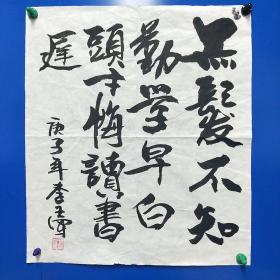 黑髮不知
勤學早白
頭方悔讀書
遲
庚子年李玉